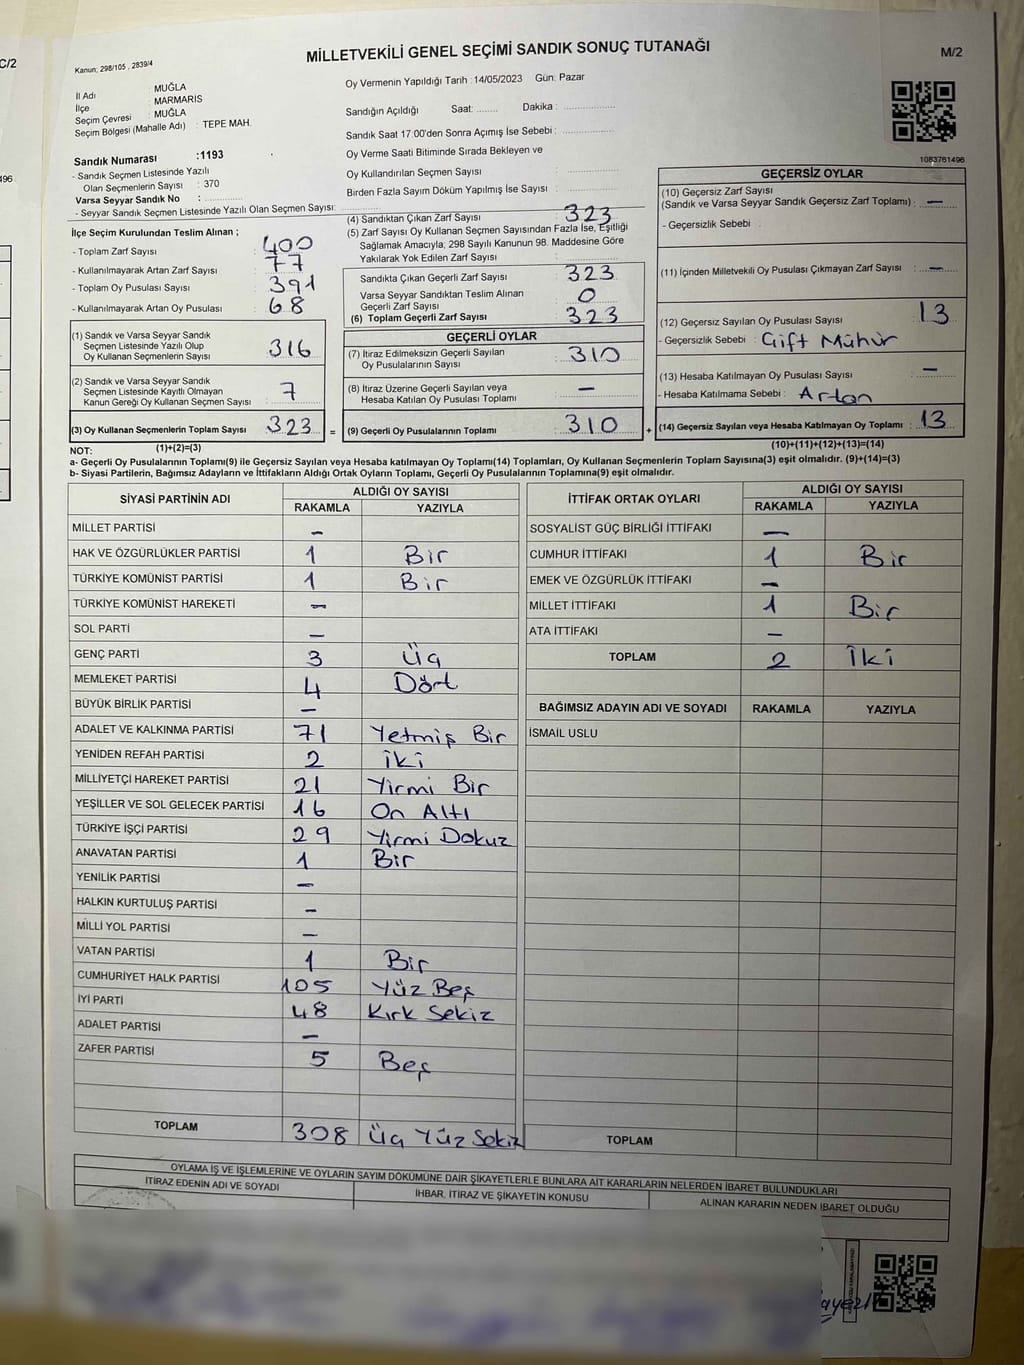 C/2
496
MİLLETVEKİLİ GENEL SEÇİMİ SANDIK SONUÇ TUTANAĞI
M/2
Kanun; 298/105 , 2839/4
İl Adı : MUĞLA
İlçe : MARMARİS
Seçim Çevresi : MUĞLA
Seçim Bölgesi (Mahalle Adı) : TEPE MAH.
Sandık Numarası :1193
- Sandık Seçmen Listesinde Yazılı
Olan Seçmenlerin Sayısı : 370
Varsa Seyyar Sandık No : ............
- Seyyar Sandık Seçmen Listesinde Yazılı Olan Seçmen Sayısı:
Oy Vermenin Yapıldığı Tarih : 14/05/2023 Gün: Pazar
Sandığın Açıldığı Saat: ........ Dakika : ..................
Sandık Saat 17.00'den Sonra Açımış İse Sebebi : ..................
Oy Verme Saati Bitiminde Sırada Bekleyen ve
Oy Kullandırılan Seçmen Sayısı : ..................
Birden Fazla Sayım Döküm Yapılmış İse Sayısı : ..................
1083761496
İlçe Seçim Kurulundan Teslim Alınan ;
- Toplam Zarf Sayısı : 400
- Kullanılmayarak Artan Zarf Sayısı : 77
- Toplam Oy Pusulası Sayısı : 391
- Kullanılmayarak Artan Oy Pusulası : 68
(1) Sandık ve Varsa Seyyar Sandık
Seçmen Listesinde Yazılı Olup
Oy Kullanan Seçmenlerin Sayısı : 316
(2) Sandık ve Varsa Seyyar Sandık
Seçmen Listesinde Kayıtlı Olmayan
Kanun Gereği Oy Kullanan Seçmen Sayısı : 7
(3) Oy Kullanan Seçmenlerin Toplam Sayısı : 323 =
(1)+(2)=(3)
(4) Sandıktan Çıkan Zarf Sayısı : 323
(5) Zarf Sayısı Oy Kullanan Seçmen Sayısından Fazla İse, Eşitliği
Sağlamak Amacıyla; 298 Sayılı Kanunun 98. Maddesine Göre
Yakılarak Yok Edilen Zarf Sayısı :
Sandıkta Çıkan Geçerli Zarf Sayısı : 323
Varsa Seyyar Sandıktan Teslim Alınan
Geçerli Zarf Sayısı : 0
(6) Toplam Geçerli Zarf Sayısı : 323
GEÇERLİ OYLAR
(7) İtiraz Edilmeksizin Geçerli Sayılan
Oy Pusulalarının Sayısı : 310
(8) İtiraz Üzerine Geçerli Sayılan veya
Hesaba Katılan Oy Pusulası Toplamı : –
(9) Geçerli Oy Pusulalarının Toplamı : 310 +
GEÇERSİZ OYLAR
(10) Geçersiz Zarf Sayısı
(Sandık ve Varsa Seyyar Sandık Geçersiz Zarf Toplamı) : –
- Geçersizlik Sebebi :
(11) İçinden Milletvekili Oy Pusulası Çıkmayan Zarf Sayısı : –
(12) Geçersiz Sayılan Oy Pusulası Sayısı : 13
- Geçersizlik Sebebi : Çift Mühür
(13) Hesaba Katılmayan Oy Pusulası Sayısı : –
- Hesaba Katılmama Sebebi : Artan
(14) Geçersiz Sayılan veya Hesaba Katılmayan Oy Toplamı : 13
(10)+(11)+(12)+(13)=(14)
NOT:
a- Geçerli Oy Pusulalarının Toplamı(9) ile Geçersiz Sayılan veya Hesaba katılmayan Oy Toplamı(14) Toplamları, Oy Kullanan Seçmenlerin Toplam Sayısına(3) eşit olmalıdır. (9)+(14)=(3)
b- Siyasi Partilerin, Bağımsız Adayların ve İttifakların Aldığı Ortak Oyların Toplamı, Geçerli Oy Pusulalarının Toplamına(9) eşit olmalıdır.
SİYASİ PARTİNİN ADI ALDIĞI OY SAYISI
RAKAMLA YAZIYLA
MİLLET PARTİSİ –
HAK VE ÖZGÜRLÜKLER PARTİSİ 1 Bir
TÜRKİYE KOMÜNİST PARTİSİ 1 Bir
TÜRKİYE KOMÜNİST HAREKETİ –
SOL PARTİ –
GENÇ PARTİ 3 Üç
MEMLEKET PARTİSİ 4 Dört
BÜYÜK BİRLİK PARTİSİ –
ADALET VE KALKINMA PARTİSİ 71 Yetmiş Bir
YENİDEN REFAH PARTİSİ 2 İki
MİLLİYETÇİ HAREKET PARTİSİ 21 Yirmi Bir
YEŞİLLER VE SOL GELECEK PARTİSİ 16 On Altı
TÜRKİYE İŞÇİ PARTİSİ 29 Yirmi Dokuz
ANAVATAN PARTİSİ 1 Bir
YENİLİK PARTİSİ –
HALKIN KURTULUŞ PARTİSİ –
MİLLİ YOL PARTİSİ –
VATAN PARTİSİ 1 Bir
CUMHURİYET HALK PARTİSİ 105 Yüz Beş
İYİ PARTİ 48 Kırk Sekiz
ADALET PARTİSİ –
ZAFER PARTİSİ 5 Beş
TOPLAM 308 Üç Yüz Sekiz
İTTİFAK ORTAK OYLARI ALDIĞI OY SAYISI
RAKAMLA YAZIYLA
SOSYALİST GÜÇ BİRLİĞİ İTTİFAKI –
CUMHUR İTTİFAKI 1 Bir
EMEK VE ÖZGÜRLÜK İTTİFAKI –
MİLLET İTTİFAKI 1 Bir
ATA İTTİFAKI –
TOPLAM 2 İki
BAĞIMSIZ ADAYIN ADI VE SOYADI RAKAMLA YAZIYLA
İSMAİL USLU
TOPLAM
OYLAMA İŞ VE İŞLEMLERİNE VE OYLARIN SAYIM DÖKÜMÜNE DAİR ŞİKAYETLERLE BUNLARA AİT KARARLARIN NELERDEN İBARET BULUNDUKLARI
İTİRAZ EDENİN ADI VE SOYADI İHBAR, İTİRAZ VE ŞİKAYETİN KONUSU ALINAN KARARIN NEDEN İBARET OLDUĞU